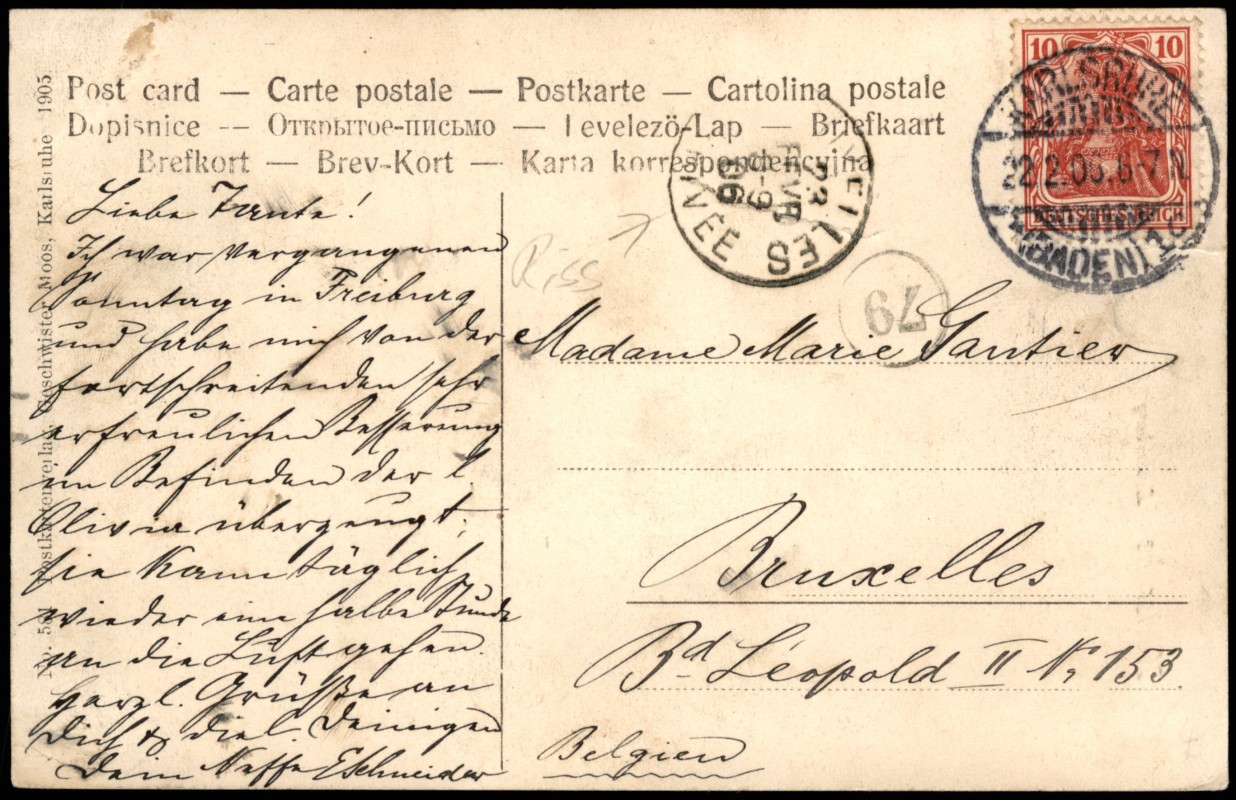 Post card — Carte postale — Postkarte — Cartolina postale
Dopisnice -- Открытое-письмо — Levelezö-Lap — Briefkaart
Brefkort — Brev-Kort — Karta korrespondencyjna
Liebe Tante!
Ich war vergangenen
Sonntag in Freiburg
und habe mich von der
fortschreitenden sehr
erfreulichen Besserung
im Befinden der l.
Olivia überzeugt,
sie kann täglich
wieder eine halbe Stunde
an die Luft gehen.
Herzl. Grüße an
Dich & die l. Deinigen
Dein Neffe ESchneider
Postkartenverlag Geschwister Moos, Karlsruhe 1905
10 10
DEUTSCHES REICH
KARLSRUHE
22.2.06. 6-7 N
(BADEN) 1
23
FEVR
8-9
06
79
Riss
Madame Marie Gautier
Bruxelles
Bd Léopold II No 153
Belgien